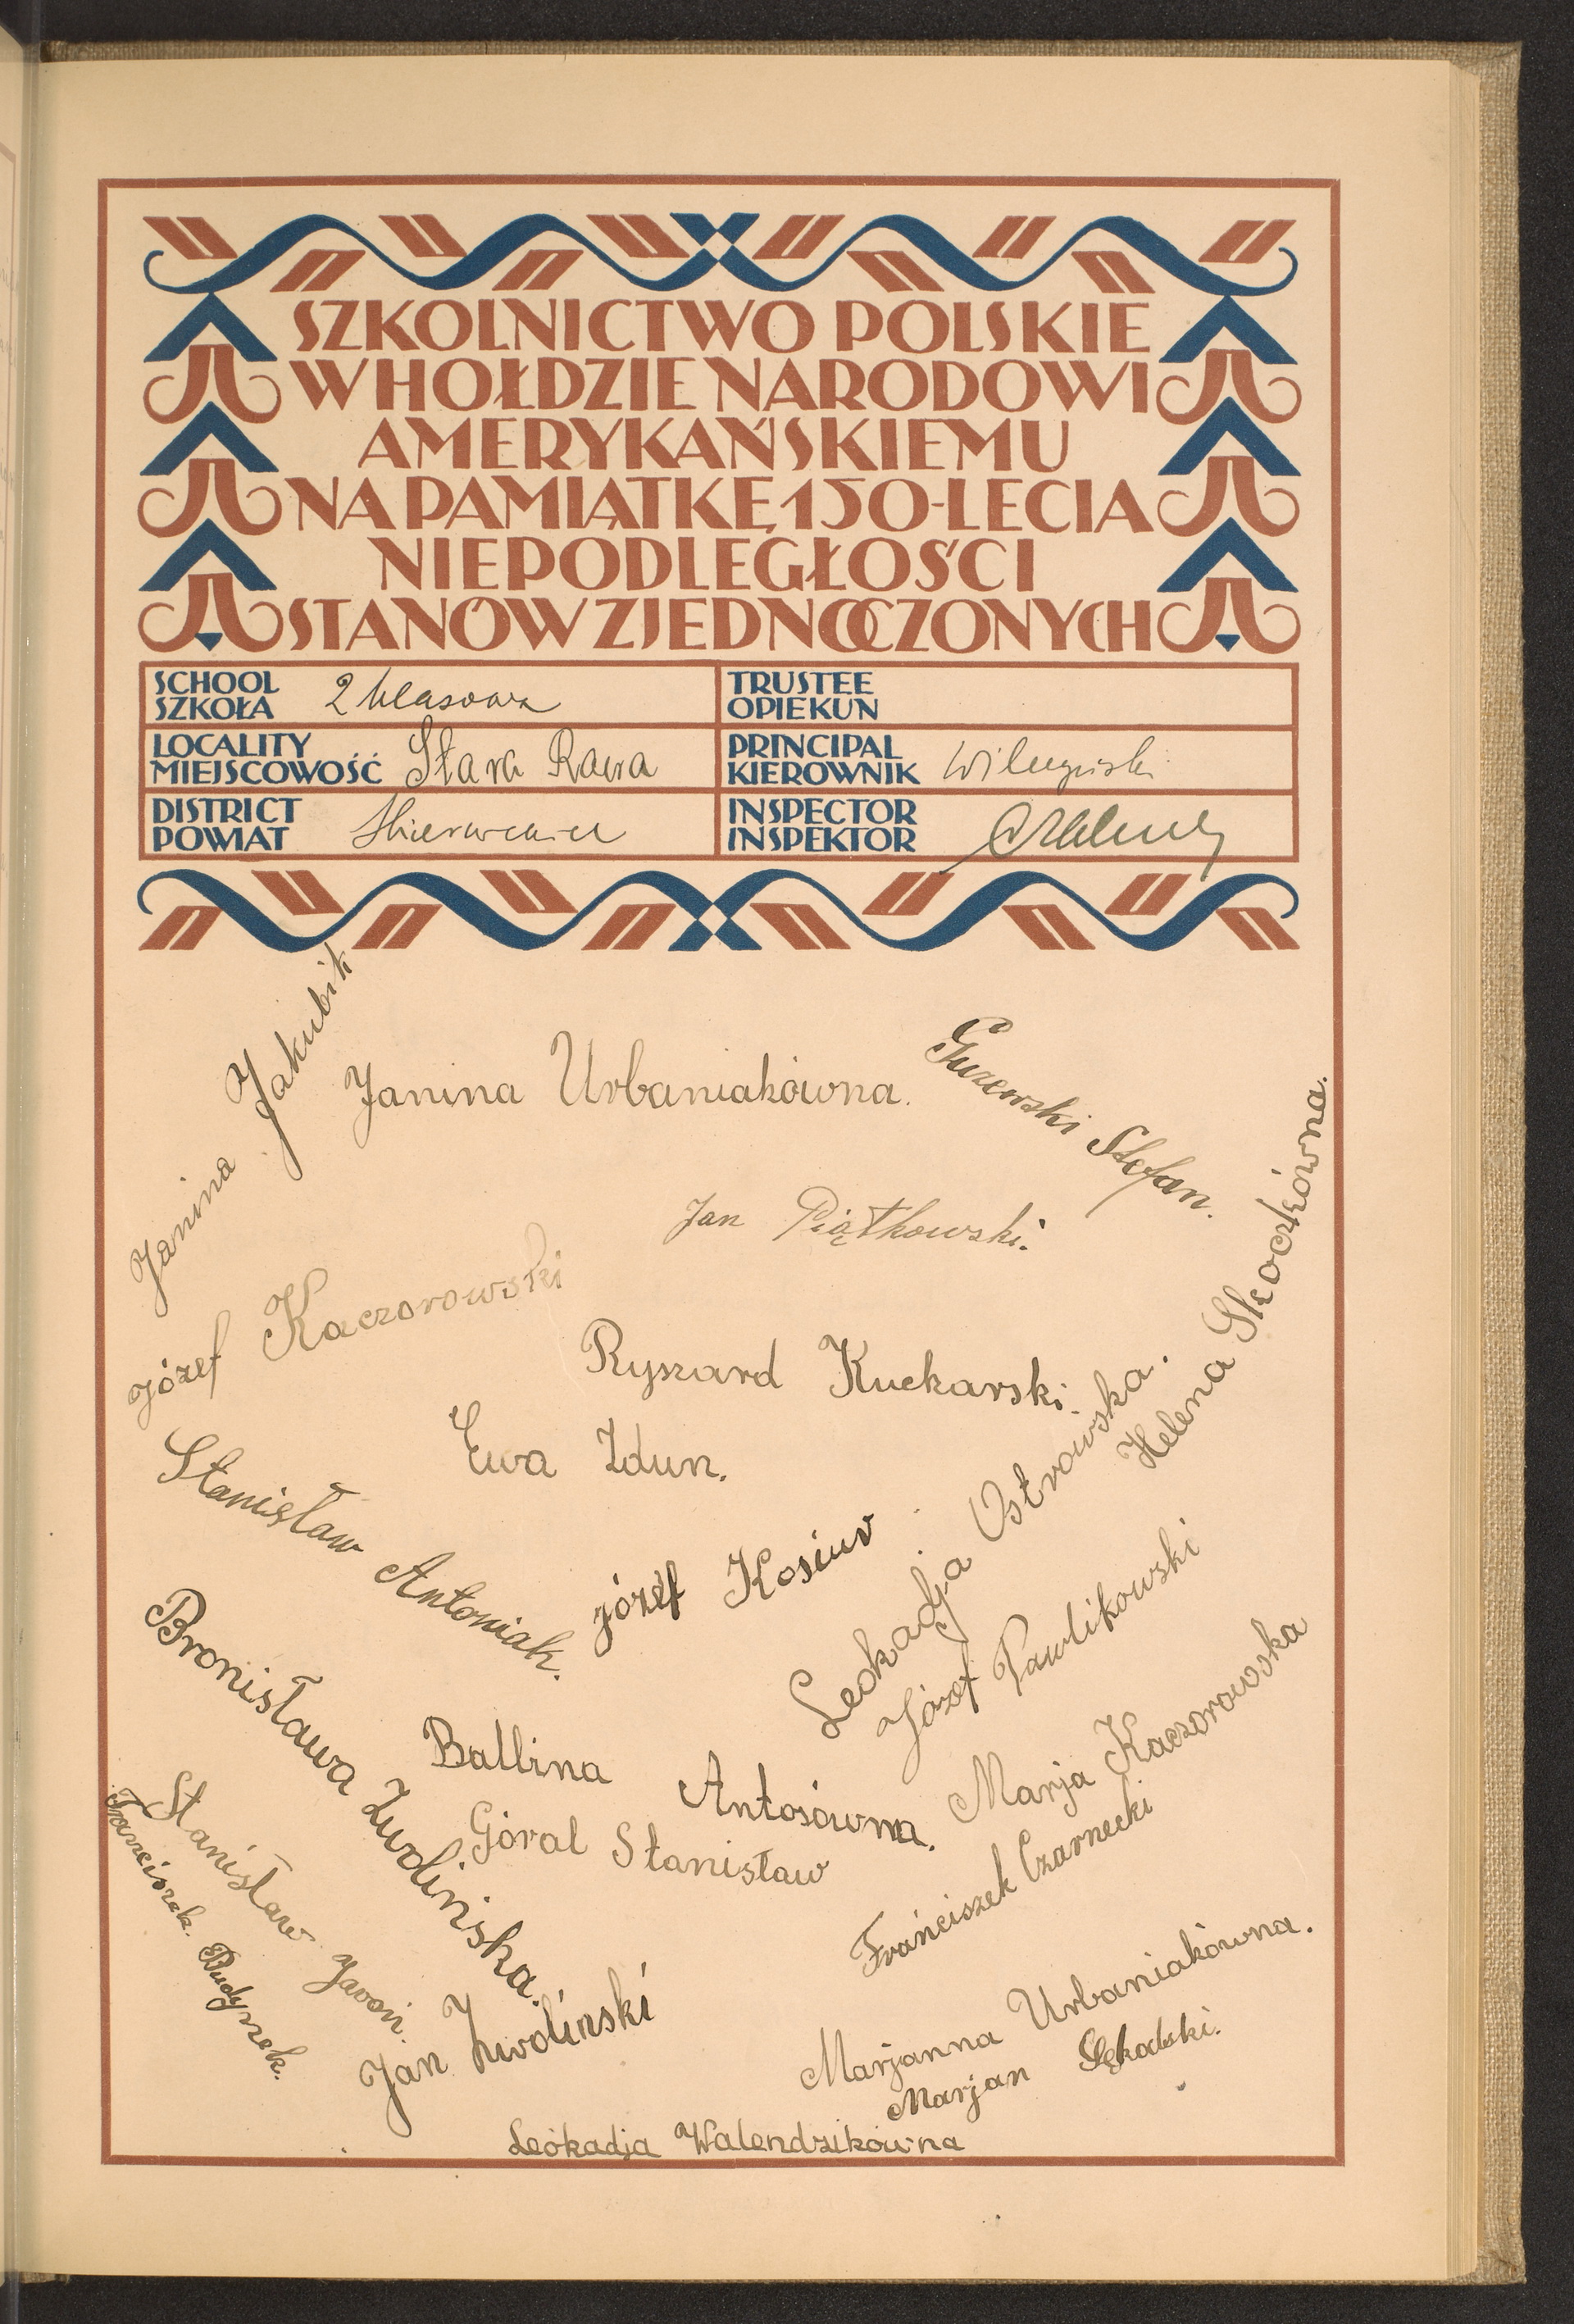 SZKOLNICTWO POLSKIE
W HOŁDZIE NARODOWI
AMERYKAŃSKIEMU
NA PAMIĄTKĘ 150-LECIA
NIEPODLEGŁOŚCI
STANÓW ZJEDNOCZONYCH
SCHOOL
SZKOŁA 2 klasowa
TRUSTEE
OPIEKUN
LOCALITY
MIEJSCOWOŚĆ Stara Rawa
PRINCIPAL
KIEROWNIK
DISTRICT
POWIAT Skierniewice
INSPECTOR
INSPEKTOR
Janina Jakubik
Janina Urbaniakówna.
Guzewski Stefan.
Jan Piątkowski.
Józef Kaczorowski
Helena Skoczkówna.
Ryszard Kucharski.
Ewa Zdun.
Stanisław Antoniak.
Józef Kosiur
Leokadja Ostrowska.
Józef Pawlikowski
Bronisława Zwolińska.
Balbina Antosówna.
Marja Kaczorowska
Góral Stanisław
Franciszek Czarnecki
Stanisław Jaroń.
Franciszek. Budynek.
Jan Zwoliński
Marjanna Urbaniakówna.
Marjan
Leokadja Walendzikówna